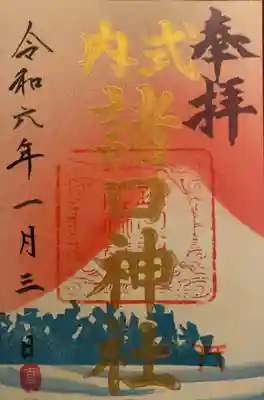 奉拝
式内
諸口神社
令和六年一月三日